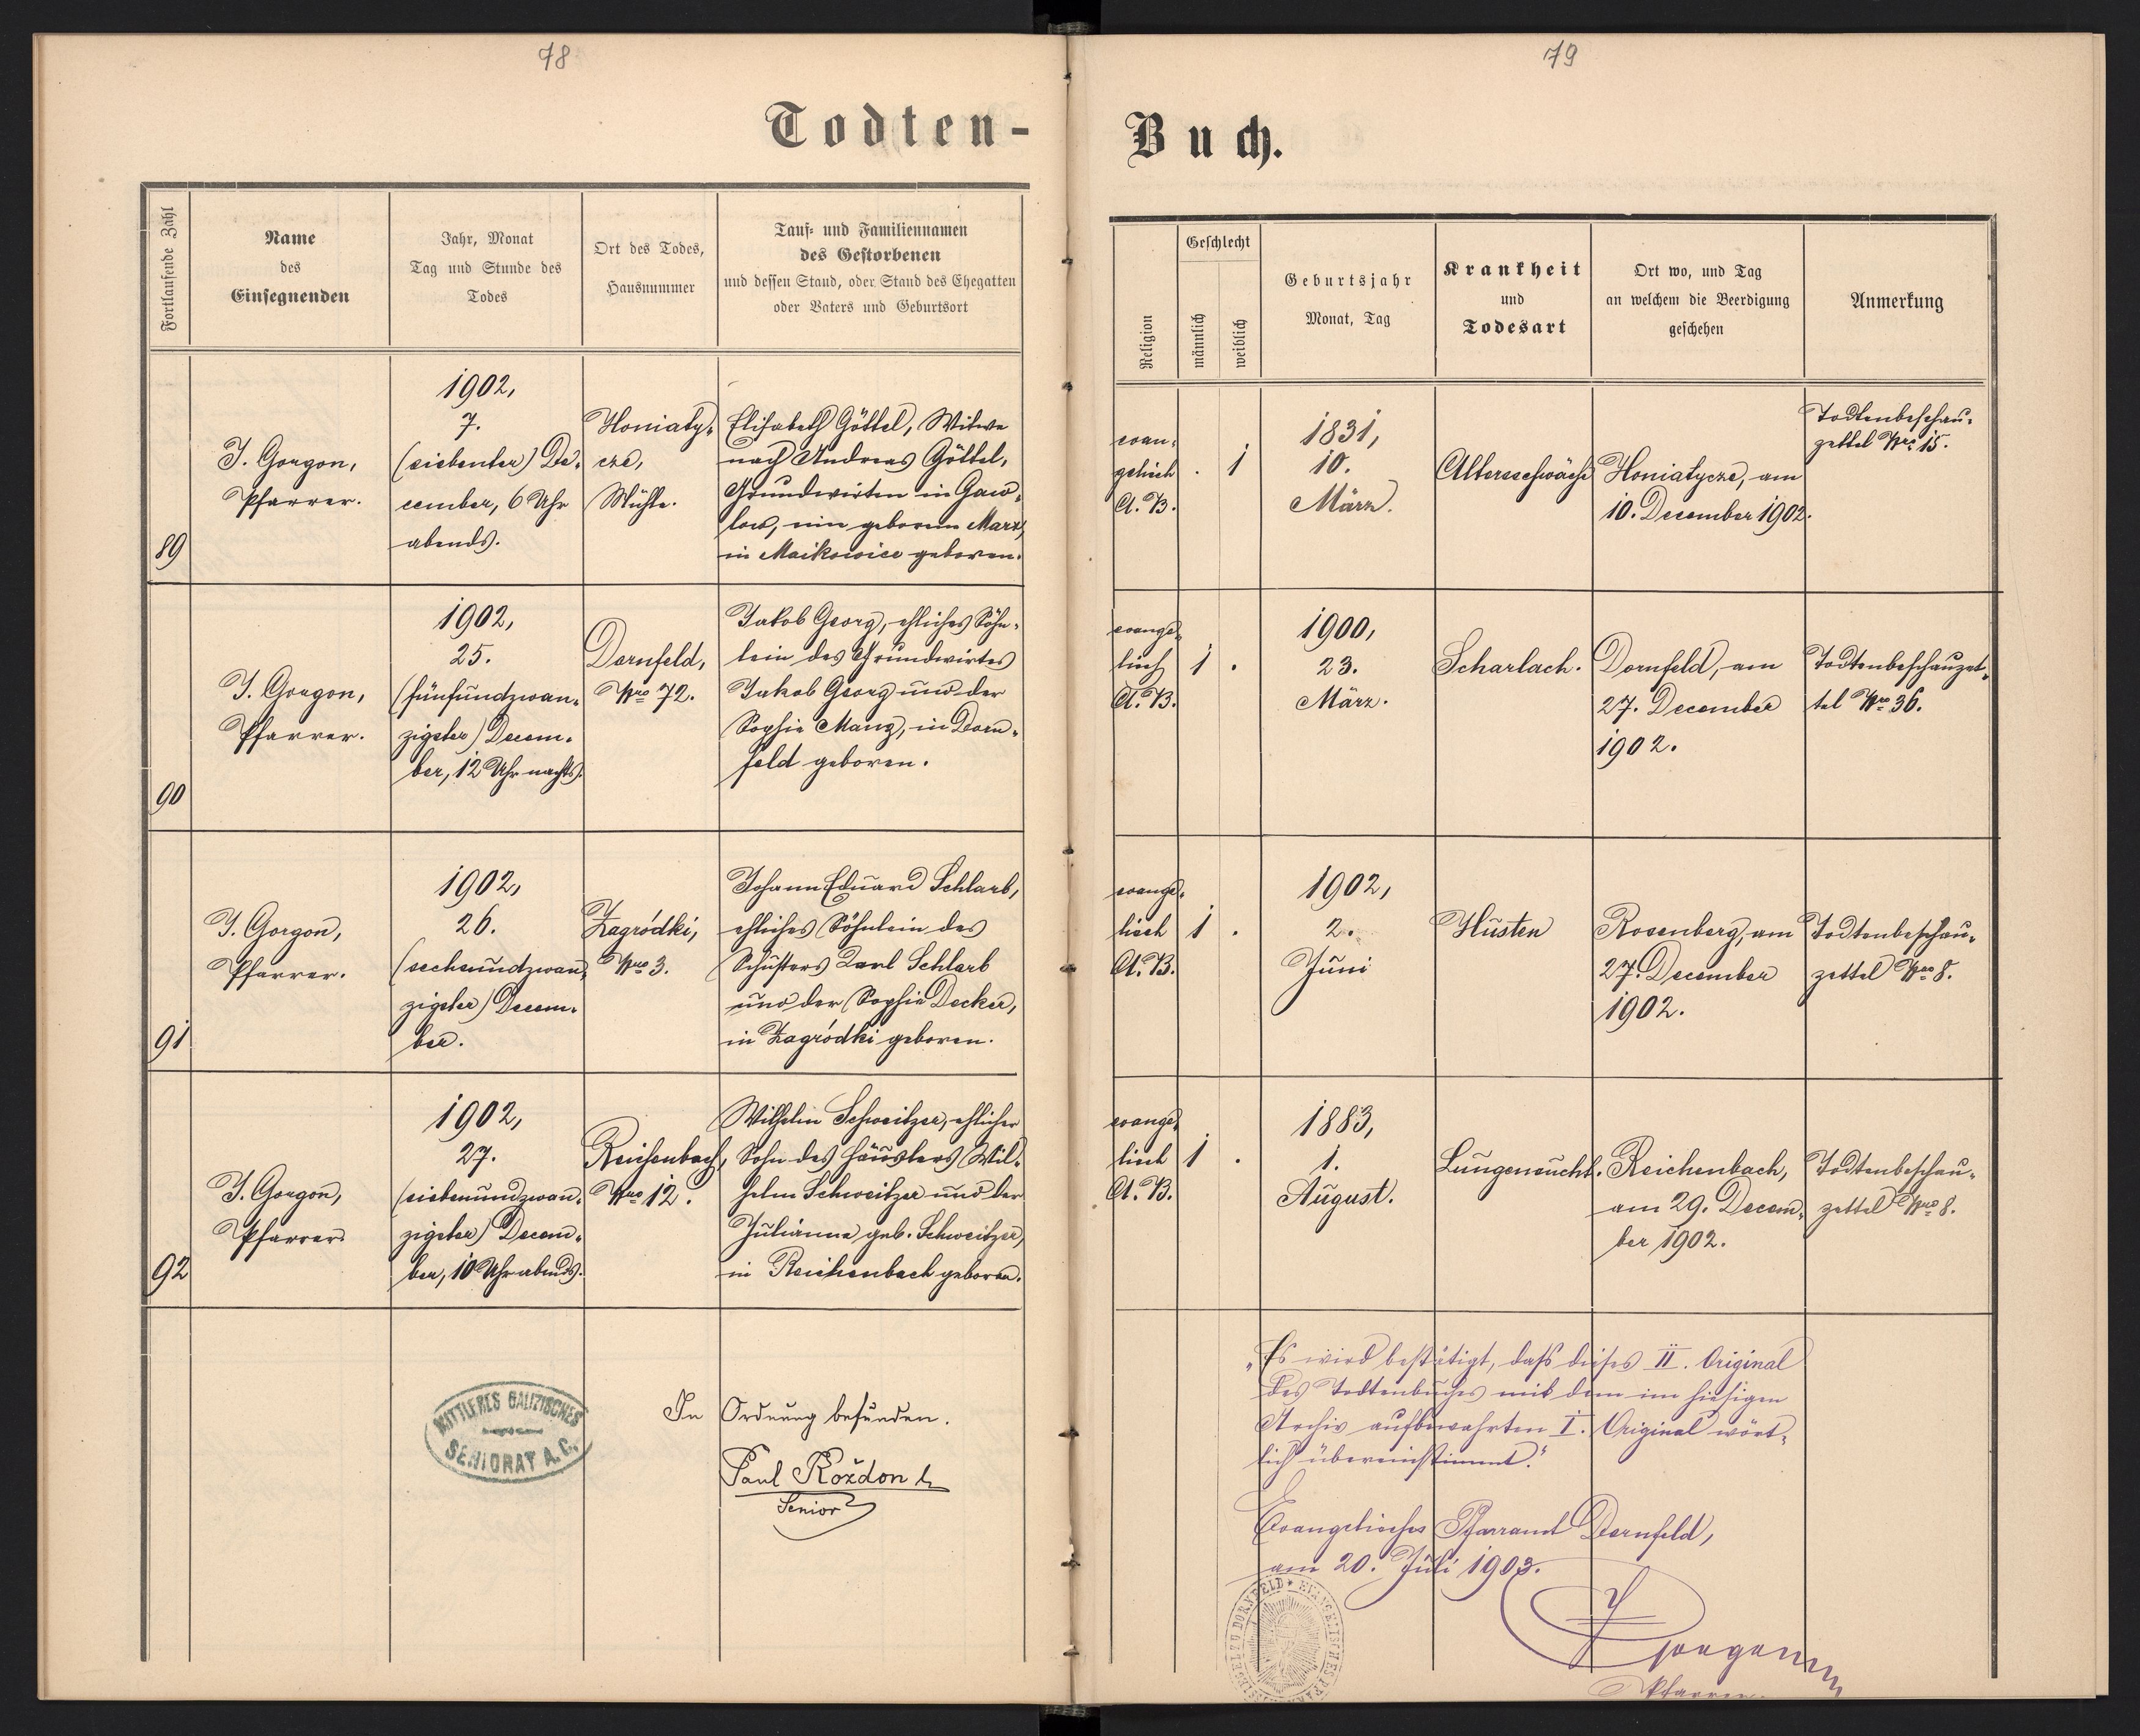 78
Todten-
Fortlaufende Zahl
Name
des
Einsegnenden
Jahr, Monat
Tag und Stunde des
Todes
Ort des Todes,
Hausnummer
Tauf- und Familiennamen
des Gestorbenen
und dessen Stand, oder Stand des Ehegatten
oder Vaters und Geburtsort
89
J. Gorgon,
Pfarrer.
1902,
7.
(siebenter) De-
cember, 6 Uhr
abends.
Honiaty-
cze,
Mühle.
Elisabeth Göttel, Witwe
nach Andreas Göttel,
Grundwirten in Gaw-
low, eine geborene Marz,
in Maikowice geboren.
90
J. Gorgon,
Pfarrer.
1902,
25.
(fünfundzwan-
zigster) Decem-
ber, 12 Uhr nachts.
Dornfeld,
Nro 72.
Jakob Georg, ehliches Söhn-
lein des Grundwirtes
Jakob Georg und der
Sophie Manz, in Dorn-
feld geboren.
91
J. Gorgon,
Pfarrer.
1902,
26.
(sechsundzwan-
zigster) Decem-
ber.
Zagródki,
Nro 3.
Johann Eduard Schlarb,
ehliches Söhnlein des
Schusters Karl Schlarb
und der Sophie Decker,
in Zagródki geboren.
92
J. Gorgon,
Pfarrer.
1902,
27.
(siebenundzwan-
zigster) Decem-
ber, 10 Uhr abends.
Reichenbach,
Nro 12.
Wilhelm Schweitzer, ehlicher
Sohn des Häuslers Wil-
helm Schweitzer und der
Julianna geb. Schweitzer,
in Reichenbach geboren.
MITTLERES GALIZISCHES
SENIORAT A.C.
In Ordnung befunden.
Paul Rożdon
Senior
79
Buch.
Religion
Geschlecht
männlich
weiblich
Geburtsjahr
Monat, Tag
Krankheit
und
Todesart
Ort wo, und Tag
an welchem die Beerdigung
geschehen
Anmerkung
evan-
gelisch
A. B.
. 1
1831,
10.
März.
Altersschwäche
Honiatycze, am
10. December 1902.
Todtenbeschau-
zettel Nro 15.
evange-
lisch
A. B.
1 .
1900,
23.
März.
Scharlach.
Dornfeld, am
27. December
1902.
Todtenbeschauzet-
tel Nro 36.
evange-
lisch
A. B.
1 .
1902,
2.
Juni
Husten
Rosenberg, am
27. December
1902.
Todtenbeschau-
zettel Nro 8.
evange-
lisch
A. B.
1 .
1883,
1.
August.
Lungensucht.
Reichenbach,
am 29. Decem-
ber 1902.
Todtenbeschau-
zettel Nro 8.
"Es wird bestätigt, daß dieses II. Original
des Todtenbuches mit dem im hiesigen
Archiv aufbewahrten I. Original wört-
lich übereinstimmt."
Evangelisches Pfarramt Dornfeld,
am 20. Juli 1903.
J Gorgon
Pfarrer.